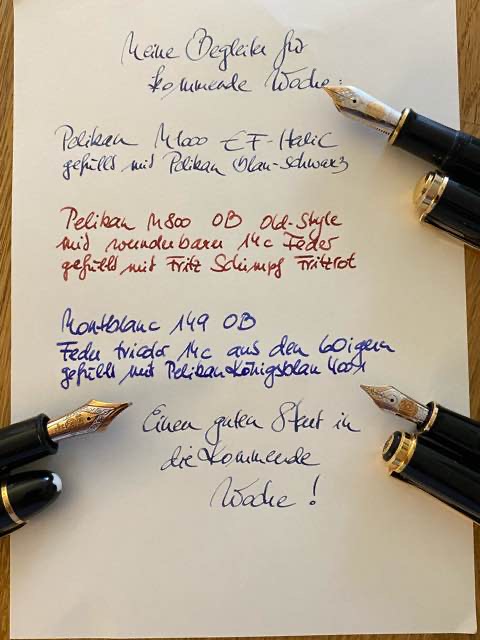 Meine Begleiter für
kommende Woche:
Pelikan M1000 EF-Italic
gefüllt mit Pelikan Blau-Schwarz
Pelikan M800 OB Old-Style
mit wunderbarer 14c Feder
gefüllt mit Fritz Schimpf Fritzrot
Montblanc 149 OB
Feder tricolor 14c aus den 60igern
gefüllt mit Pelikan Königsblau 4001
Einen guten Start in
die kommende
Woche!